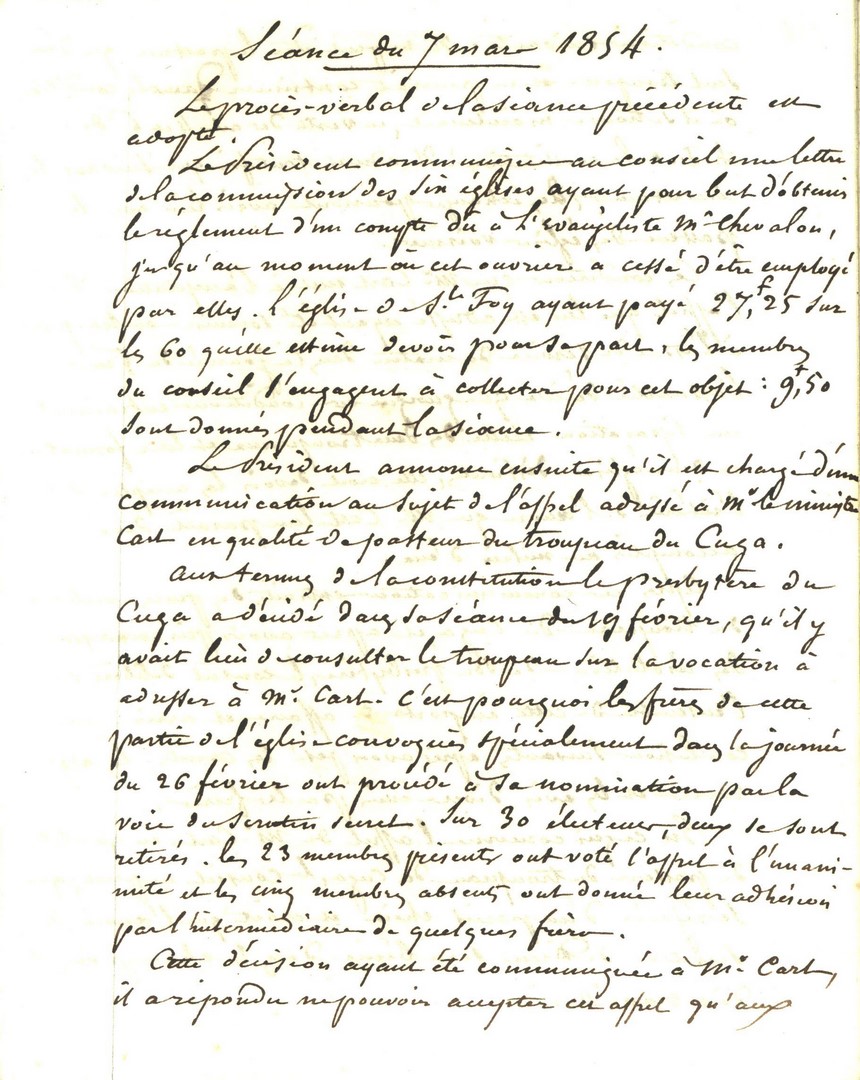 Séance du 7 mars 1854.
Le procès-verbal de la séance précédente est
adopté.
Le Président communique au conseil une lettre
de la commission des six églises ayant pour but d'obtenir
le réglement d'un compte dû à l'Evangéliste Mr Chevalon,
jusqu'au moment où cet ouvrier a cessé d'être employé
par elles. l'église de Ste Foy ayant payé 27f,25 sur
les 60 qu'elle estime devoir pour sa part, les membres
du conseil s'engagent à collecter pour cet objet : 9f,50
sont donnés pendant la séance.
Le Président annonce ensuite qu'il est chargé d'une
communication au sujet de l'appel adressé à Mr le ministre
Cart en qualité de pasteur du troupeau du
Aux termes de la constitution le presbytère du
a décidé dans sa séance du 19 février, qu'il y
avait lieu de consulter le troupeau sur la vocation à
adresser à Mr. Cart. C'est pourquoi les frères de cette
partie de l'église convoqués spécialement dans la journée
du 26 février ont procédé à sa nomination par la
voie du scrutin secret. Sur 30 électeurs, deux se sont
retirés. les 23 membres présents ont voté l'appel à l'unani-
mité et les cinq membres absents ont donné leur adhésion
par l'intermédiaire de quelques frères.
Cette décision ayant été communiquée à Mr. Cart,
il a répondu ne pouvoir accepter cet appel qu'aux